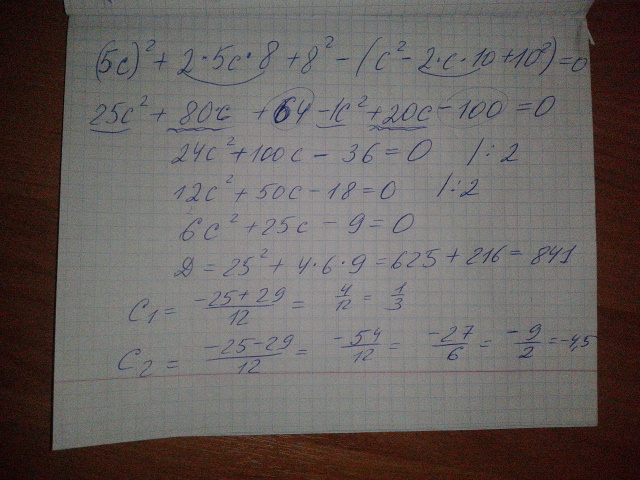 (5c)² + 2·5c·8 + 8² - (c² - 2·c·10 + 10²) = 0
25c² + 80c + 64 - 1c² + 20c - 100 = 0
24c² + 100c - 36 = 0 | : 2
12c² + 50c - 18 = 0 | : 2
6c² + 25c - 9 = 0
D = 25² + 4·6·9 = 625 + 216 = 841
C₁ = (-25+29)/12 = 4/12 = 1/3
C₂ = (-25-29)/12 = -54/12 = -27/6 = -9/2 = -4,5